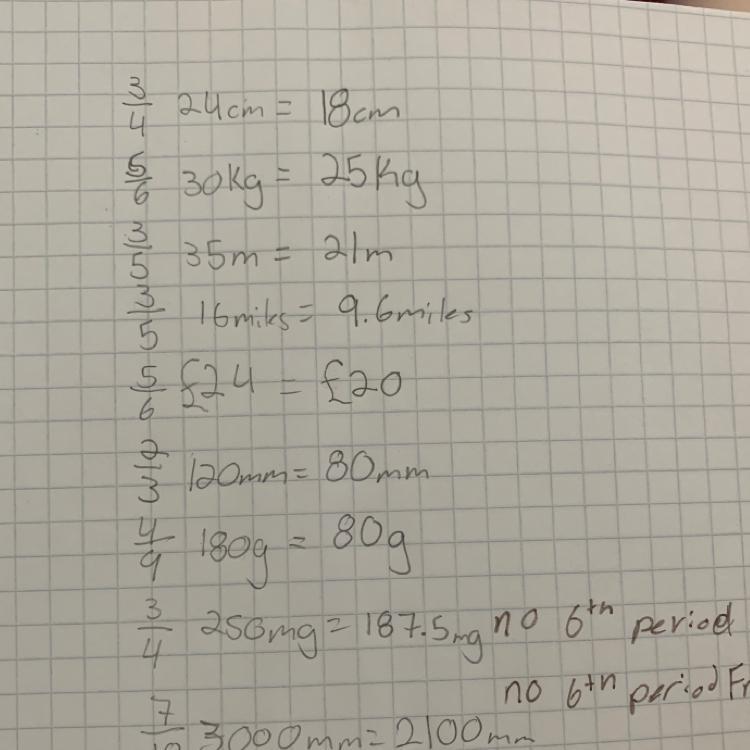 3/4 24cm = 18cm
5/6 30Kg = 25Kg
3/5 35m = 21m
3/5 16miles = 9.6miles
5/6 £24 = £20
2/3 120mm = 80mm
4/9 180g = 80g
3/4 250mg = 187.5mg no 6th period
no 6th period Fr
7/10 3000mm = 2100mm